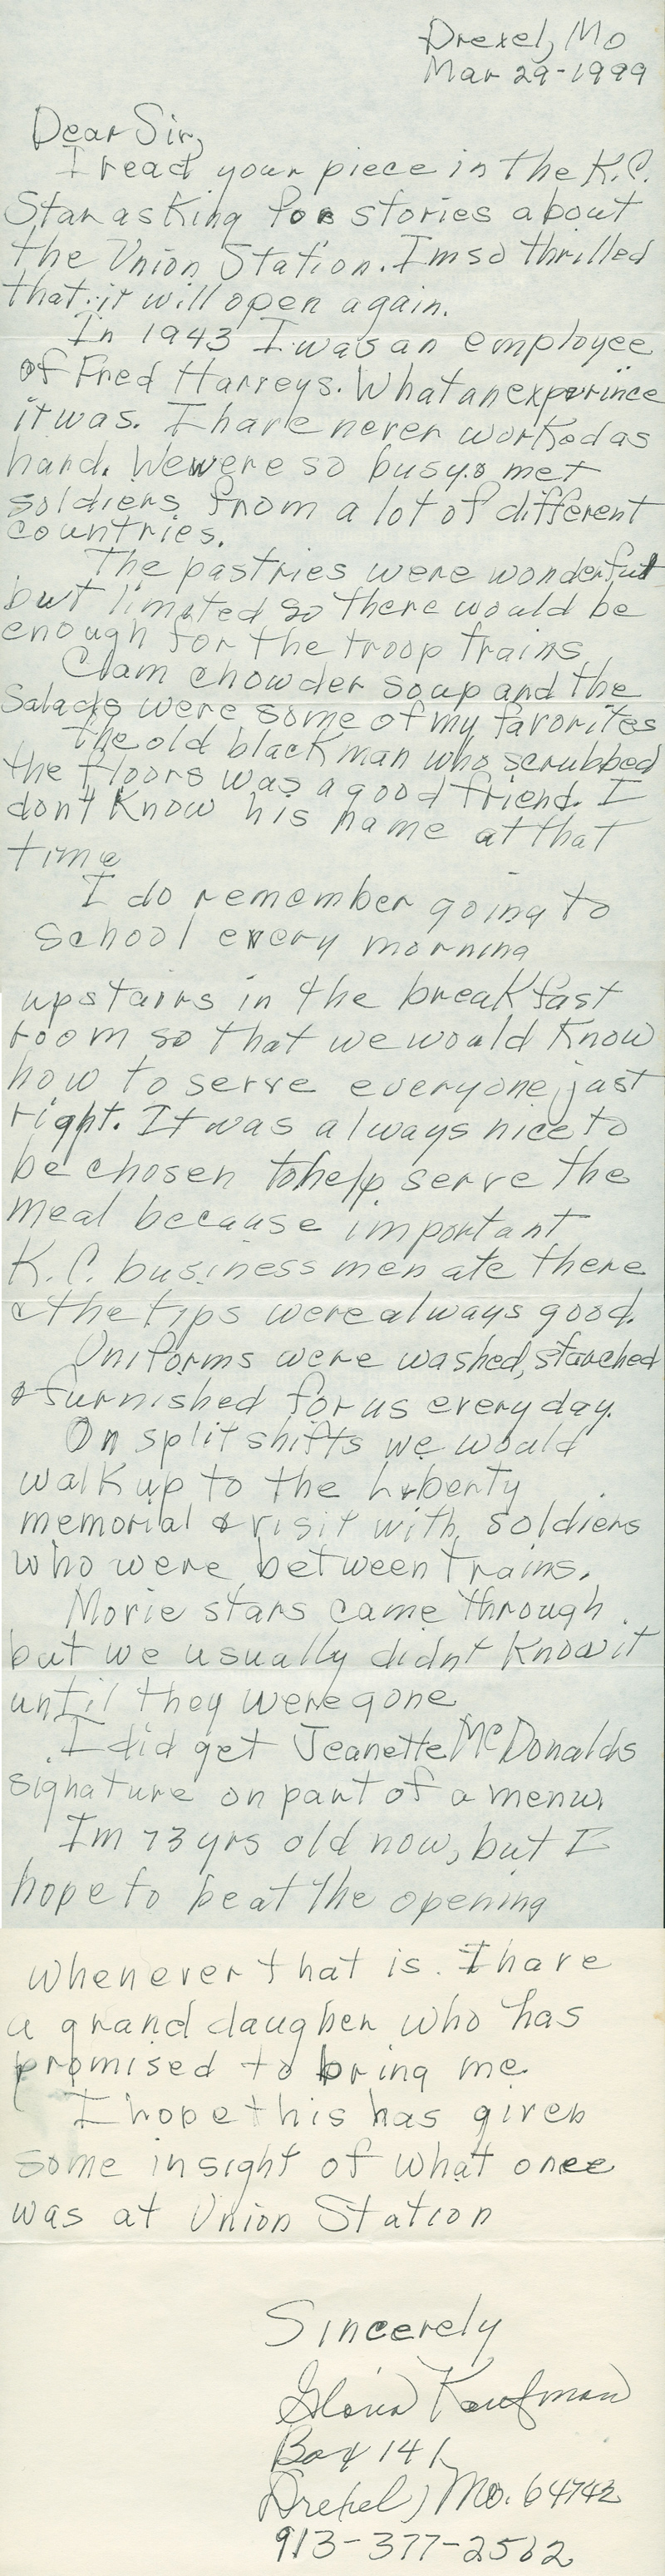 Drexel, Mo
Mar 29-1999
Dear Sir,
I read your piece in the K.C.
Star asking for stories about
the Union Station. Im so thrilled
that it will open again.
In 1943 I was an employee
of Fred Harveys. What an experince
it was. I have never worked as
hard. We were so busy & met
soldiers from a lot of different
countries.
The pastries were wonderful
but limited so there would be
enough for the troop trains
Clam chowder soup and the
Salads were some of my favorites
The old black man who scrubbed
the floors was a good friend. I
dont know his name at that
time
I do remember going to
school every morning
upstairs in the breakfast
room so that we would know
how to serve everyone just
right. It was always nice to
be chosen to help serve the
meal because important
K.C. business men ate there
& the tips were always good.
Uniforms were washed, starched
& furnished for us every day.
On split shifts we would
walk up to the Liberty
memorial & visit with soldiers
who were between trains.
Movie stars came through
but we usually didnt know it
until they were gone
I did get Jeanette McDonalds
signature on part of a menu.
Im 73 yrs old now, but I
hope to be at the opening
whenever that is. I have
a grand daugher who has
promised to bring me
I hope this has given
some insight of what once
was at Union Station
Sincerely
Gloria Kaufman
Box 141
Drexel, Mo. 64742
913-377-2562